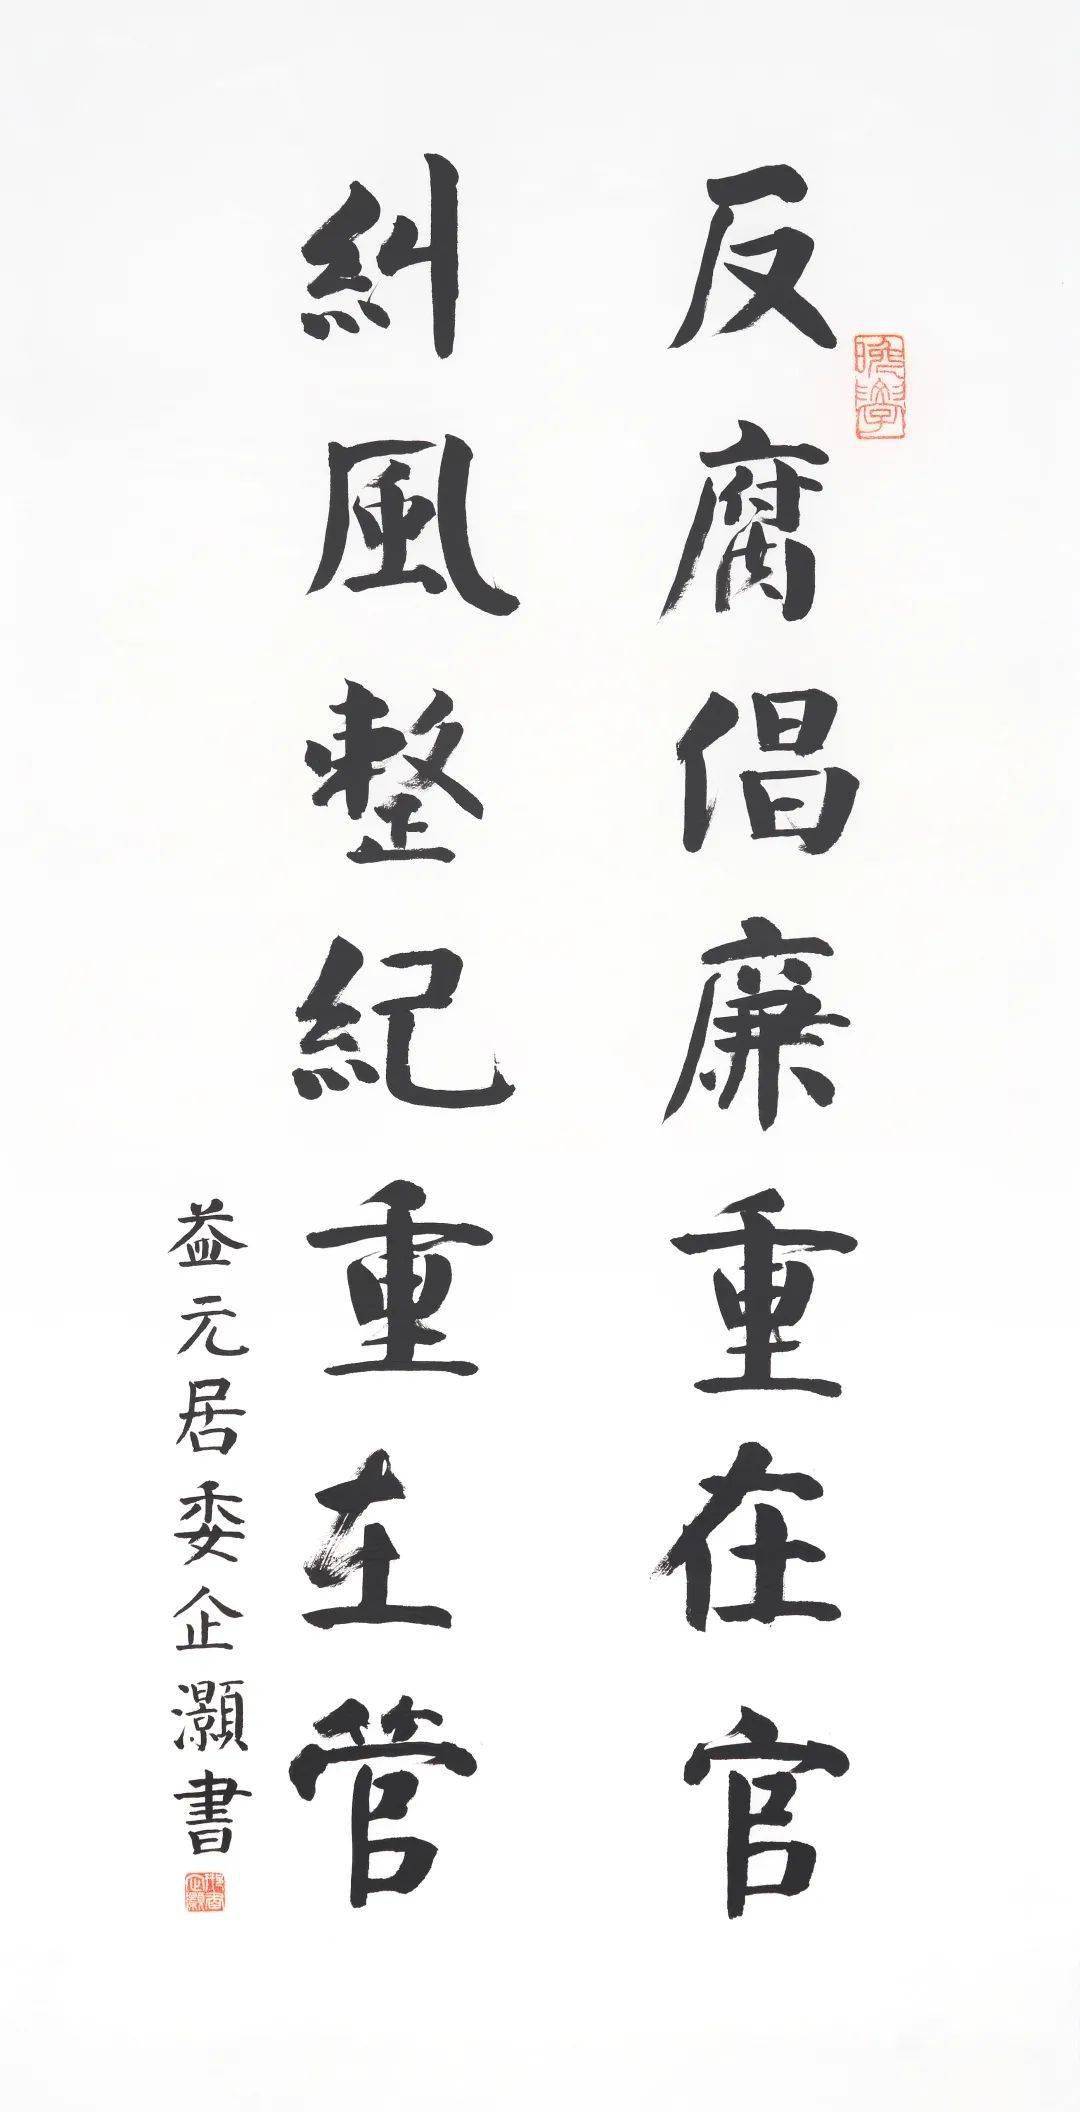 反腐倡廉重在官
糾風整紀重在管
益元居委企灝書